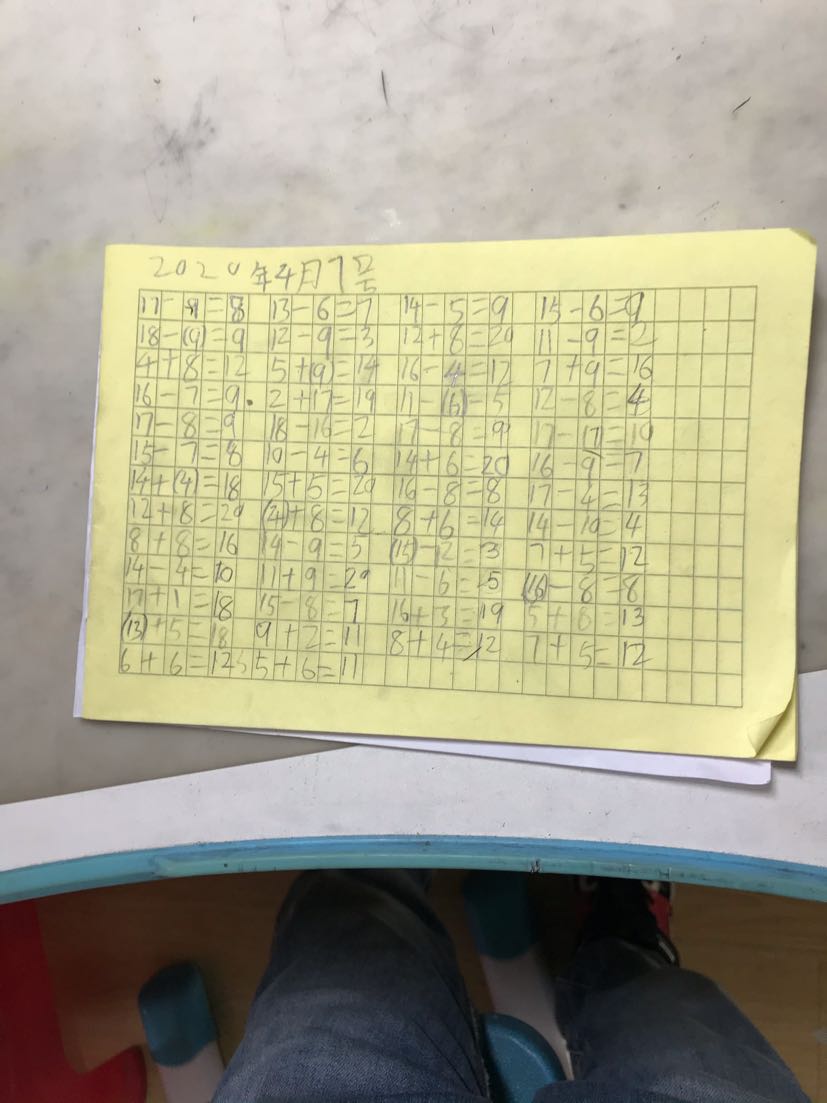 2020年4月7号
17-9=8 13-6=7 14-5=9 15-6=9
18-(9)=9 12-9=3 12+8=20 11-9=2
4+8=12 5+(9)=14 16-4=12 7+9=16
16-7=9 2+17=19 11-(6)=5 12-8=4
17-8=9 18-16=2 17-8=9 17-17=10
15-7=8 10-4=6 14+6=20 16-9=7
14+(4)=18 15+5=20 16-8=8 17-4=13
12+8=20 (4)+8=12 8+6=14 14-10=4
8+8=16 14-9=5 (15)-12=3 7+5=12
14-4=10 11+9=20 11-6=5 (16)-8=8
17+1=18 15-8=7 16+3=19 5+8=13
(13)+5=18 9+2=11 8+4=12 7+5=12
6+6=12 5+6=11